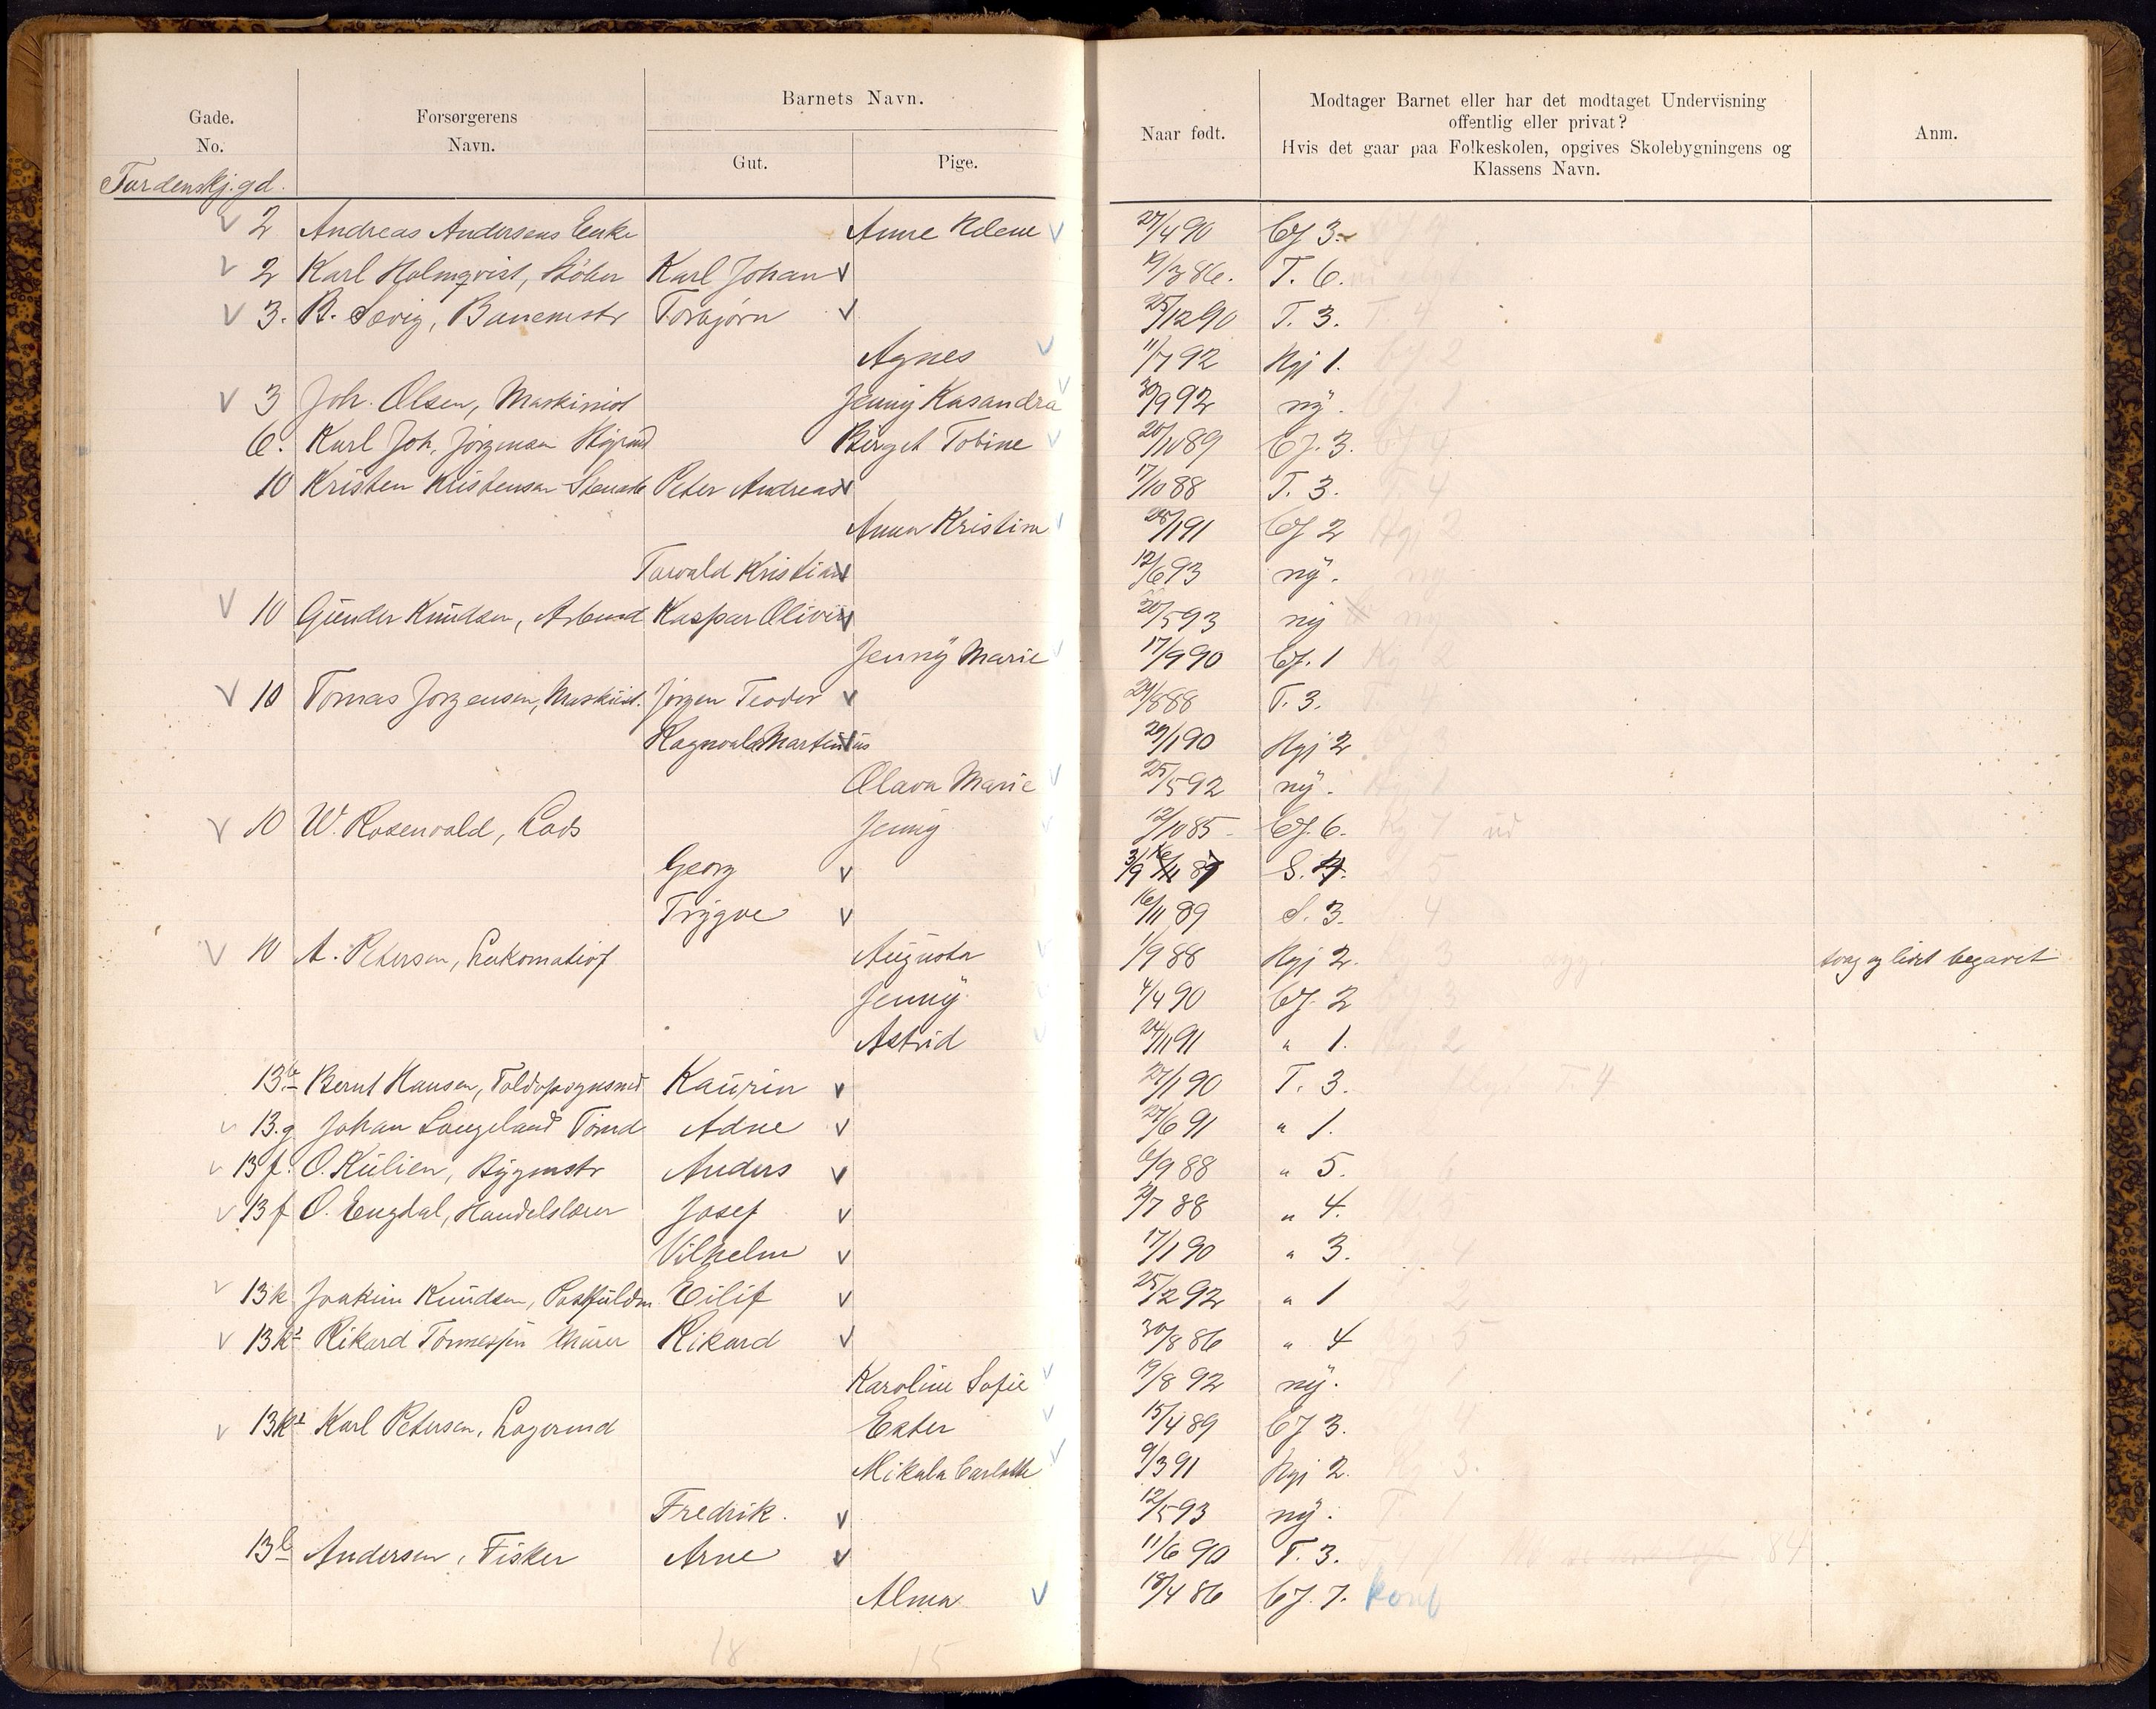 Gade.
No.
Forsørgerens
Navn.
Barnets Navn.
Gut.
Pige.
Naar født.
Modtager Barnet eller har det modtaget Undervisning
offentlig eller privat?
Hvis det gaar paa Folkeskolen, opgives Skolebygningens og
Klassens Navn.
Anm.
Tordenskj.gd.
2 Andreas Andersens Enke Anne Helene 27/4 90 3.
2 Karl Holmqvist, Støber Karl Johan 19/3 86. T. 6.
3. B. Søvig, Banemstr Torbjørn 25/12 90 T. 3. T. 4
Agnes 11/7 92 Kgj 1. 2
3 Joh. Olsen, Maskinist Jenny Kasandra 30/9 92 ny. 1
6. Karl Joh. Jørgensen Birgit Tobine 20/10 89 3. 4
10 Kristen Kristensen Peter Andreas 17/10 88 T. 3. T. 4
Anna Kristine 28/1 91 2 Kgj 2
Torvald Kristian 12/6 93 ny. ny
10 Gunder Knudsen, Arbmd Kaspar Oliver 30/5 93 ny ny
Jenny Marie 17/9 90 1 Kg 2
10 Tomas Jørgensen, Maskinist. Jørgen Teodor 29/8 88 T. 3. T. 4
Ragnvald Martinius 29/1 90 Kgj 2
Olava Marie 25/5 92 ny. Kg 1
10 W. Rosenvald, Lods Jenny 12/10 85 6. Kg 7 ud
Georg 3/9 87 S. 4. 5
Trygve 16/11 89 S. 3. 4
10 A. Petersen, Lokomotivf Augusta 1/9 88 Kgj 2. Kg 3 svag og lidet begavet
Jenny 4/4 90 2 3
Astrid 24/11 91 " 1. Kgj 2
13 Bernt Hansen, Toldopsynsmd Kaurin 27/1 90 T. 3. T. 4
13.g Johan Langeland Tømd Adne 27/6 91 " 1.
13 f. O. Kulien, Bygmstr Anders 6/9 88 " 5. 6
13 f O. Engdal, Handelslærer Josef 21/7 88 " 4.
Vilhelm 17/1 90 " 3.
13 k Joakim Knudsen, Postfuldm. Eilif 25/2 92 " 1 2
13 k Rikard Tønnessen Murer Rikard 30/8 86 " 4 5
Karoline Sofie 19/8 92 ny. 1
13 k Karl Petersen, Lagermd Ester 15/4 89 3. 4
Mikala Carlotte 9/3 91 Kgj 2. Kg 3.
Fredrik. 12/5 93 ny. T. 1
13 l Andersen, Fisker Arne 11/6 90 T. 3. 84
Alma 18/4 86 7. konf
18 15